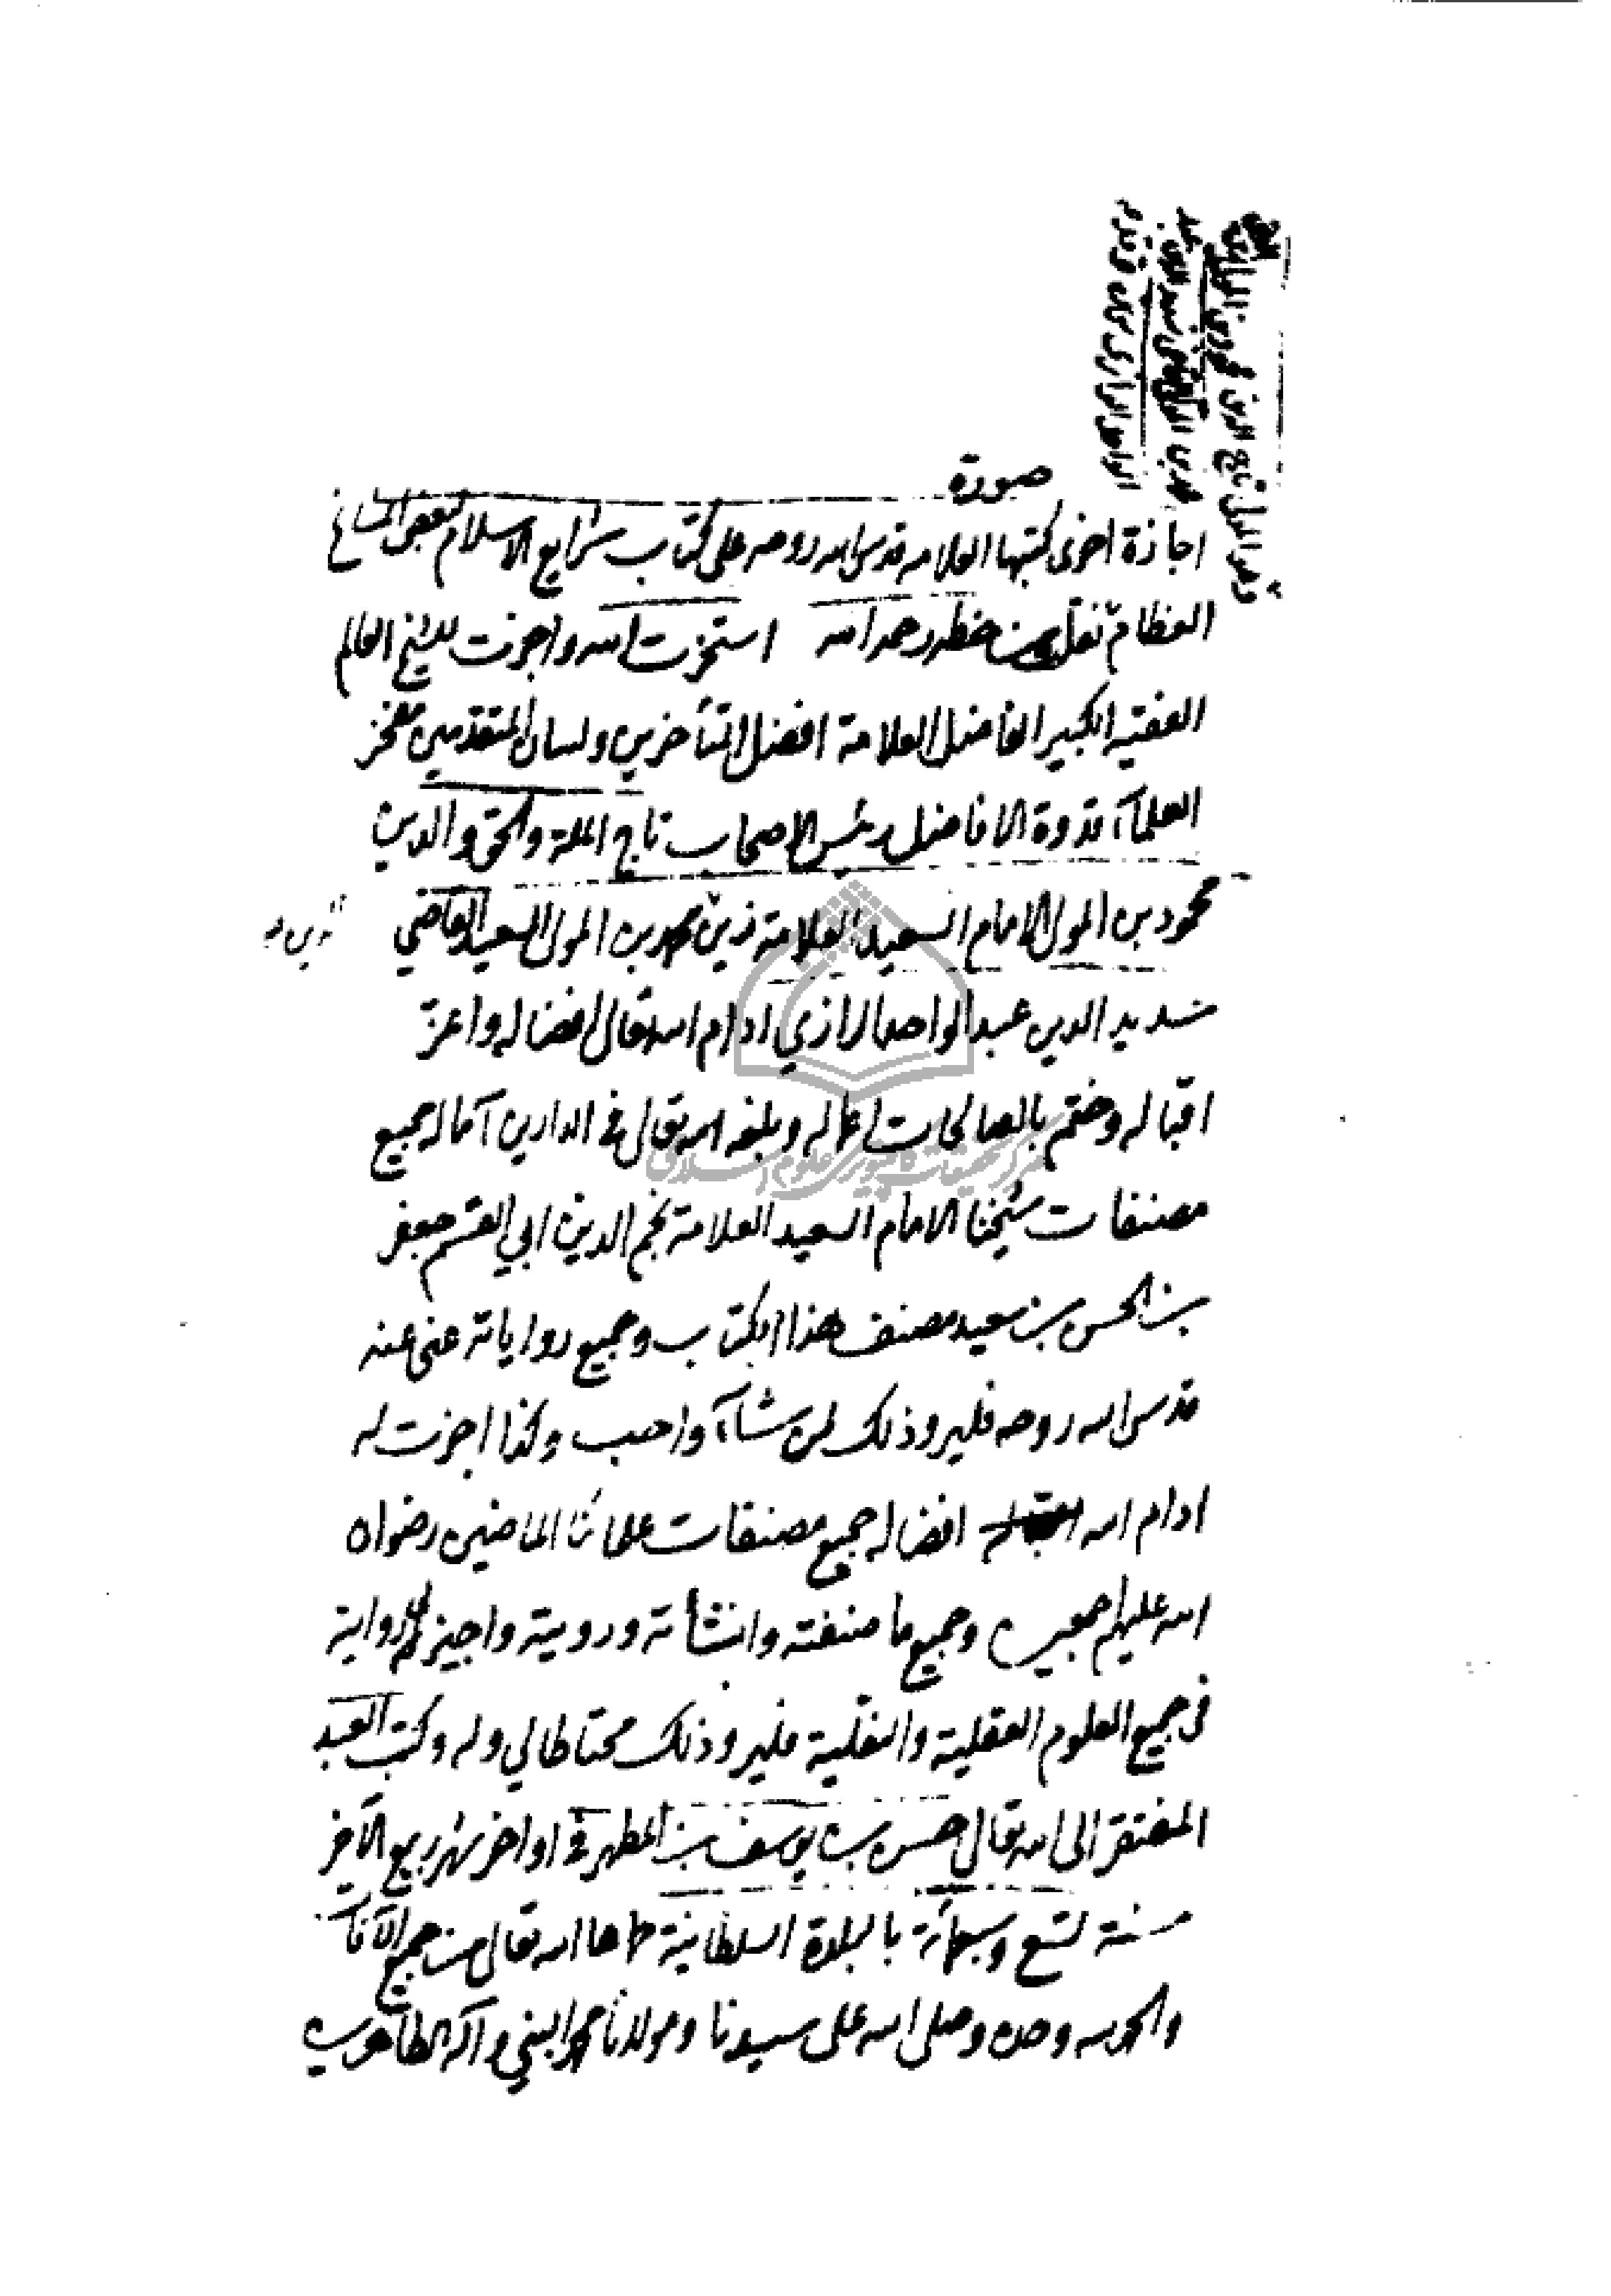 صورة
اجازة اخرى كتبها العلامه قدس الله روحه على كتاب شرايع الاسلام لبعض المشايخ
العظام نقل من خطه رحمه الله استخرت الله واجزت للشيخ العالم
الفقيه الكبير الفاضل العلامة افضل المتأخرين ولسان المتقدمين مفخر
العلمآء قدوة الافاضل رئيس الاصحاب تاج الملة والحق والدين
محمود بن المولى الامام السعيد العلامة زين محمد بن المولى السعيد القاضي
سديد الدين عبد الواحد الرازي ادام الله تعالى افضاله واعز
اقباله وختم بالصالحات اعماله وبلغه الله تعالى في الدارين آماله جميع
مصنفات شيخنا الامام السعيد العلامة نجم الدين ابي القسم جعفر
بن الحسن بن سعيد مصنف هذا الكتاب وجميع رواياته عني عنه
قدس الله روحه فليرو ذلك لمن شآء واحب وكذا اجزت له
ادام الله افضاله جميع مصنفات علمائنا الماضين رضوان
الله عليهم اجمعين وجميع ما صنفته وانشأته ورويته واجيز لي رواية
في جميع العلوم العقلية والنقلية فليرو ذلك محتاطا لي وله وكتب العبد
المفتقر الى الله تعالى حسن بن يوسف بن المطهر في اواخر شهر ربيع الآخر
سنة تسع وسبعمائة بالبلدة السلطانية حماها الله تعالى من جميع الآفات
والحمد لله وحده وصلى الله على سيدنا ومولانا محمد النبي وآله الطاهرين
مركز تحقيقات كامپيوترى علوم اسلامى